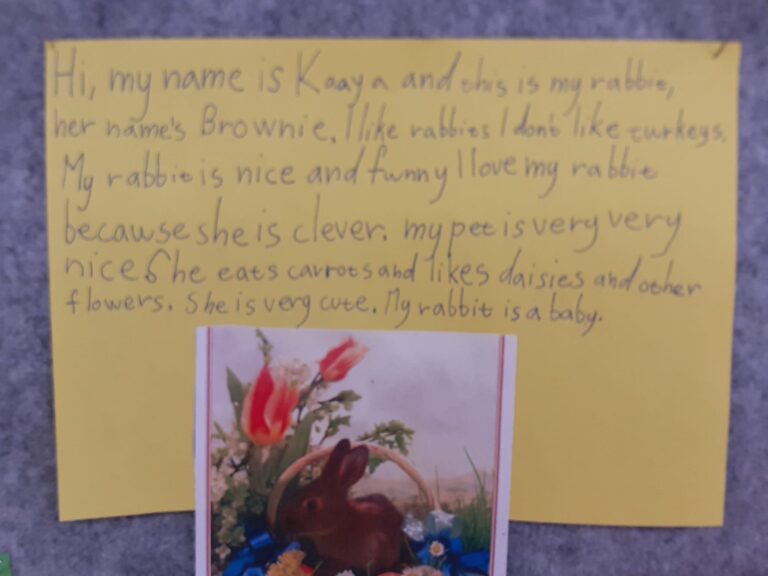 Hi, my name is Kaaya and this is my rabbit,
her name's Brownie. I like rabbits I don't like turkeys.
My rabbit is nice and funny I love my rabbit
becawse she is clever. my pet is very very
nice She eats carrots and likes daisies and other
flowers. She is very cute. My rabbit is a baby.